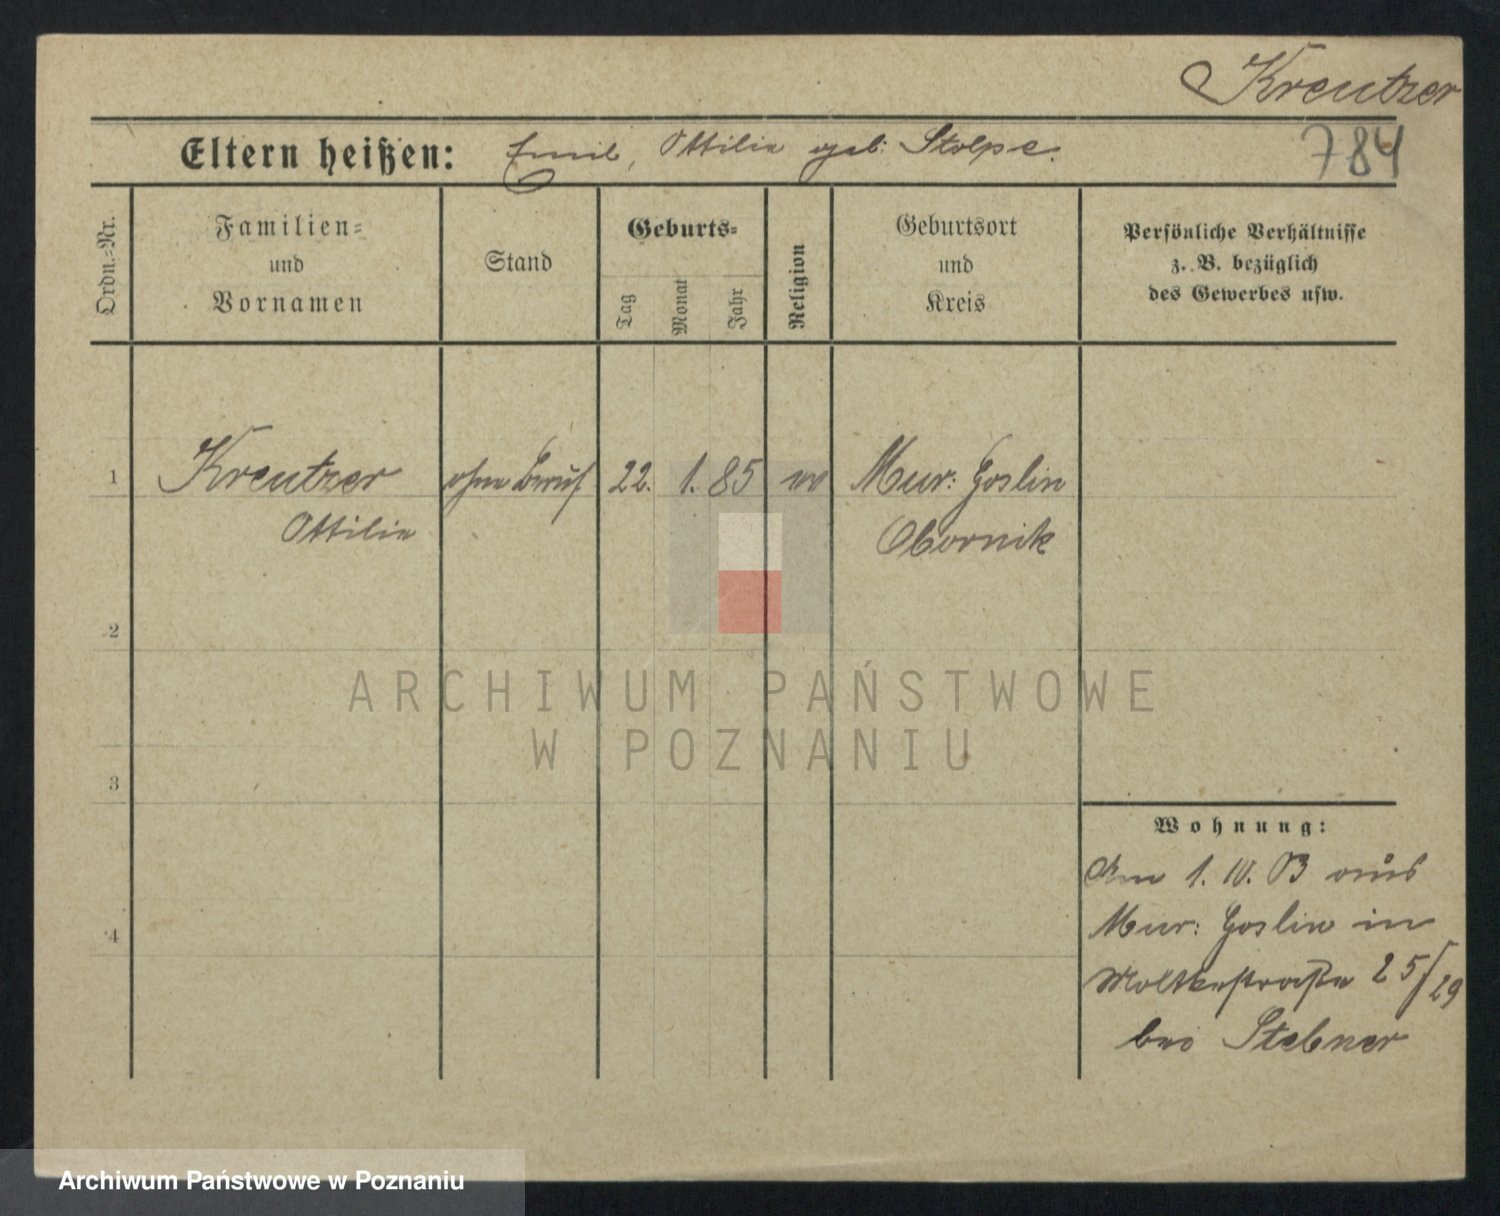 Kreutzer
784
Eltern heißen: Emil, Ottilie geb: Stolpe.
Ordn.-Nr.
Familien- und Vornamen
Stand
Geburts-
Tag
Monat
Jahr
Religion
Geburtsort und Kreis
Persönliche Verhältnisse z. B. bezüglich des Gewerbes usw.
1 Kreutzer ohne Beruf 22. 1. 85 ev Mur: Goslin
Ottilie Obornik
2
3
4
Wohnung:
Am 1. 10. 03 aus
Mur: Goslin in
Moltkestraße 25/29
bei Stebner
ARCHIWUM PAŃSTWOWE
W POZNANIU
Archiwum Państwowe w Poznaniu